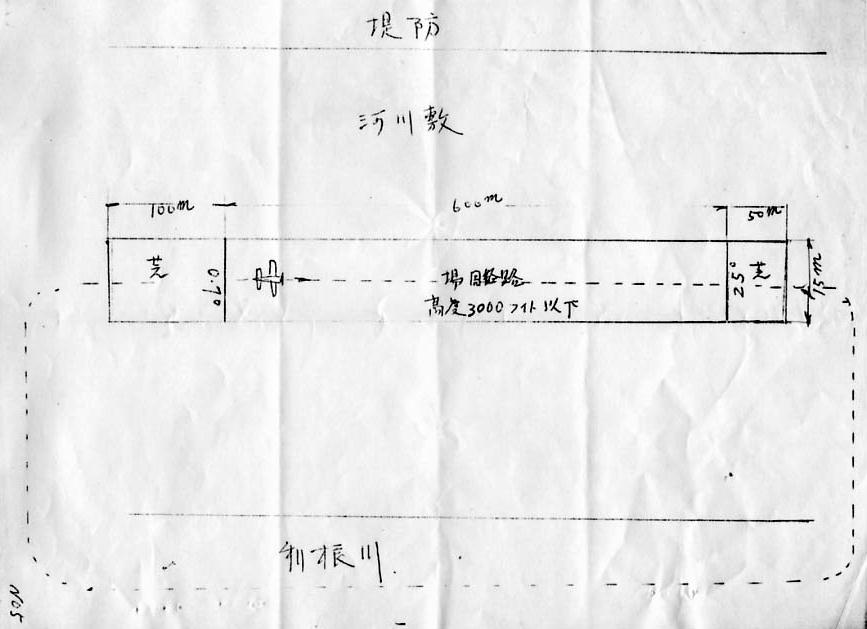 堤防
河川敷
100m
600m
50m
芝
0.70
場周経路
高度3000フィート以下
250
芝
15m
利根川
No5